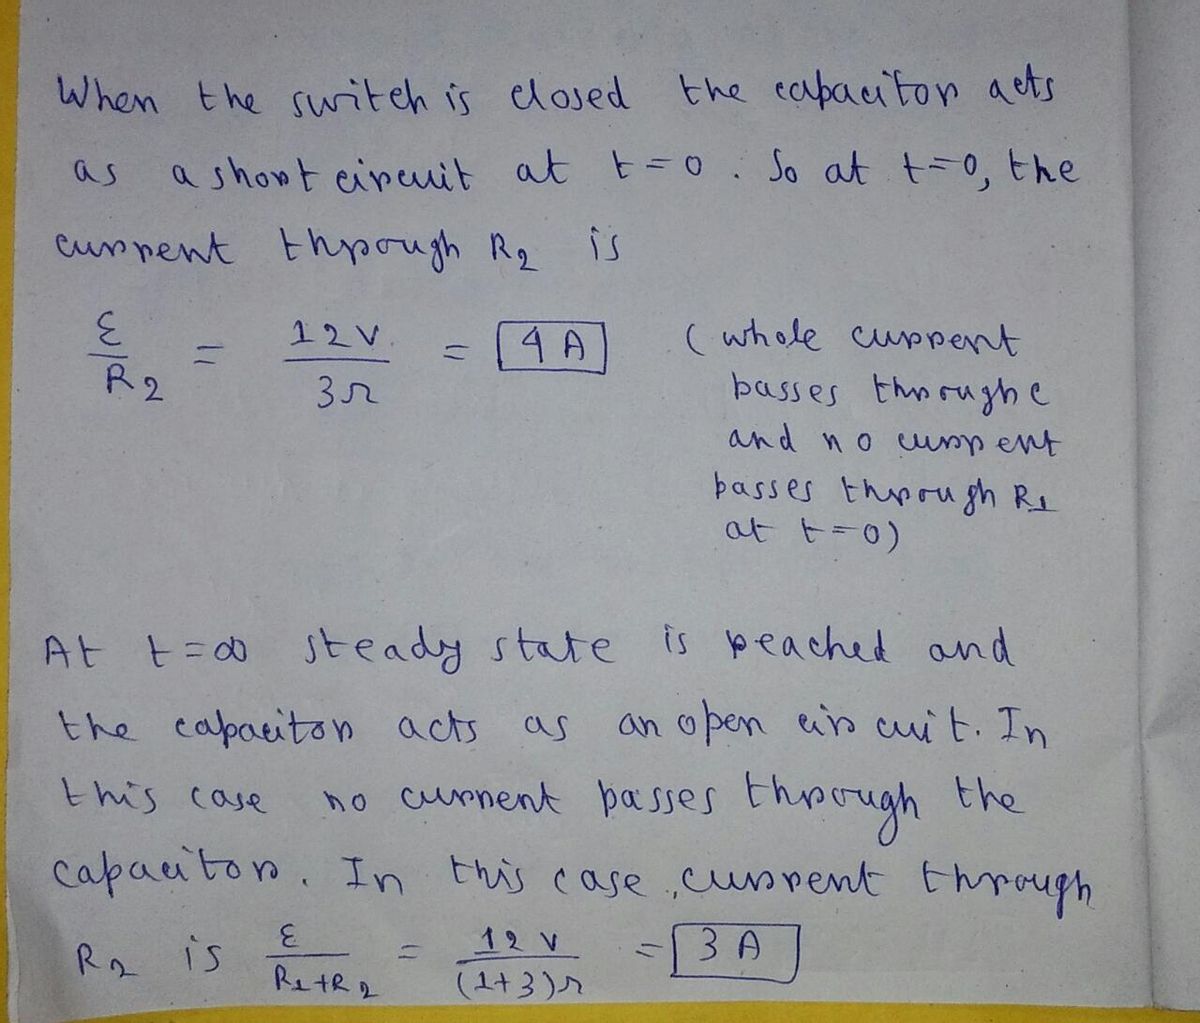 When the switch is closed the capacitor acts
as a short circuit at t=0. So at t=0, the
current through R₂ is
ε/R₂ = 12V/3Ω = 4A (whole current
passes through c
and no current
passes through R₁
at t=0)
At t=∞ steady state is reached and
the capacitor acts as an open circuit. In
this case no current passes through the
capacitor. In this case, current through
R₂ is ε/R₁+R₂ = 12V/(1+3)Ω = 3A